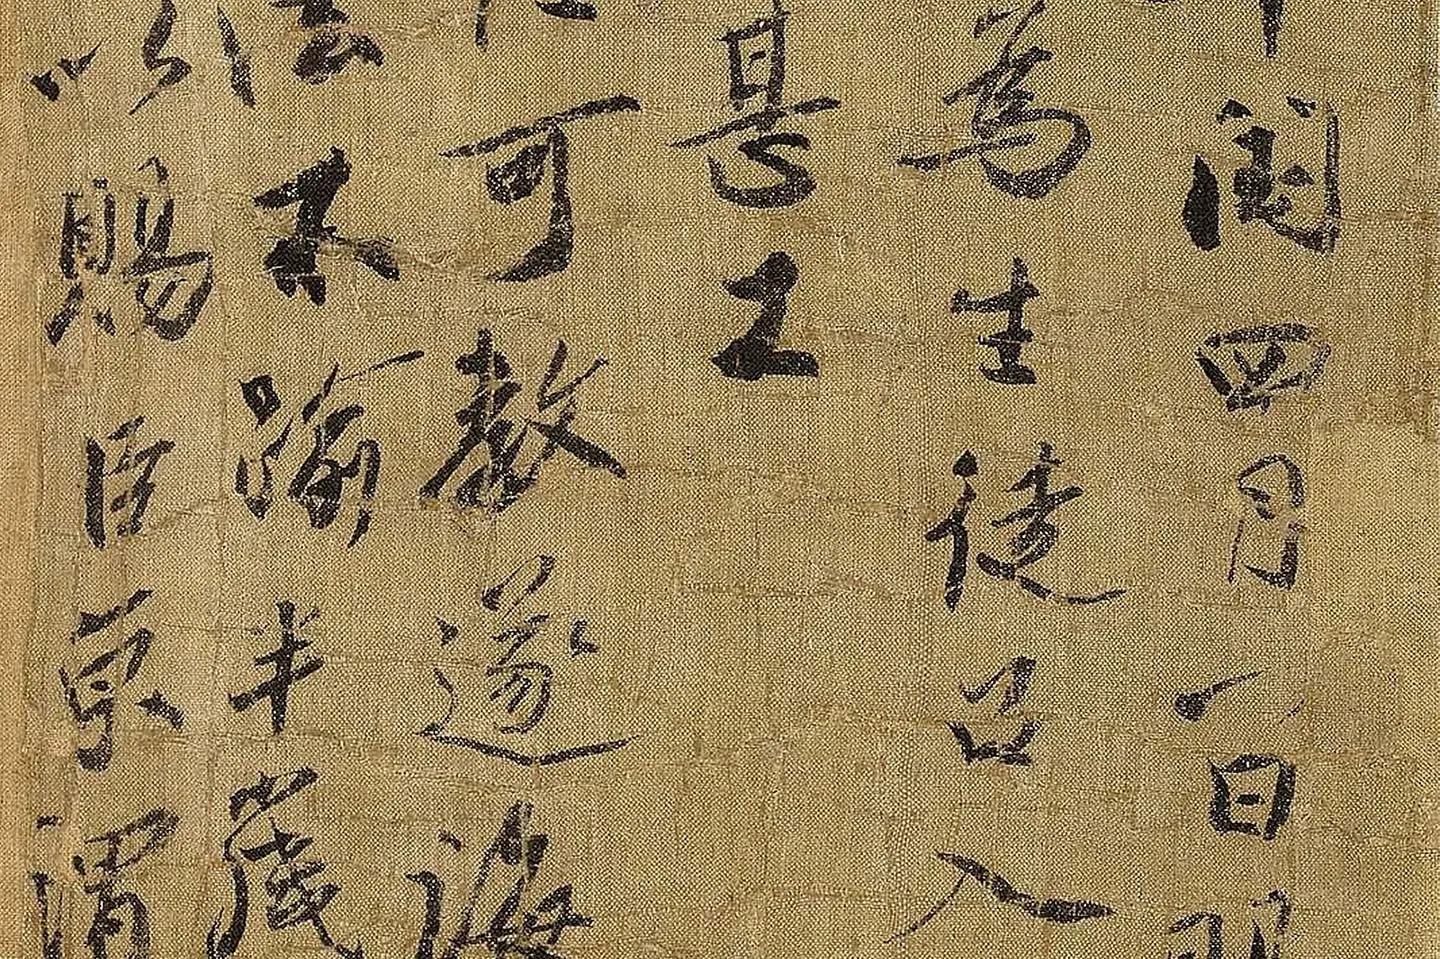 閏四月一日
為生徒召入
甚工
可教遂誨
法不踰半歲
以賜臣京謂